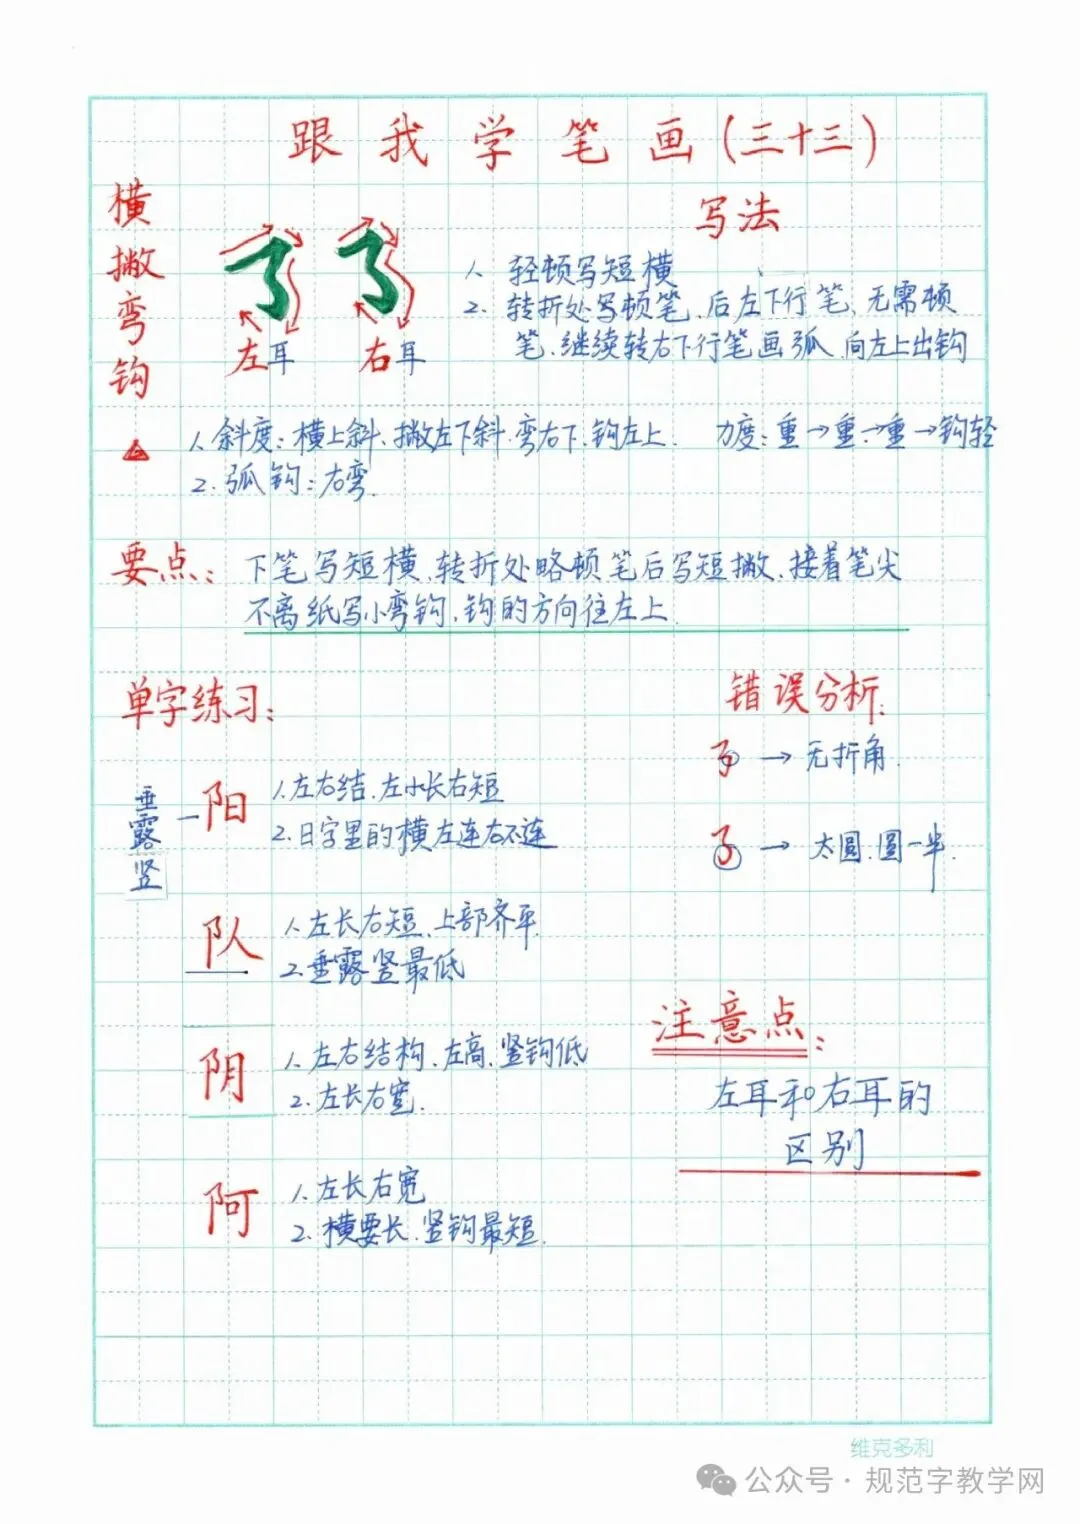 跟我学笔画(三十三)
横撇弯钩
左耳 右耳
写法
1. 轻顿写短横
2. 转折处写顿笔、后左下行笔、无需顿
笔、继续转右下行笔画弧、向左上出钩
1. 斜度:横上斜、撇左下斜、弯右下、钩左上. 力度:重→重→重→钩轻
2. 弧钩:右弯.
要点:
下笔写短横、转折处略顿笔后写短撇、接着笔尖
不离纸写小弯钩、钩的方向往左上.
单字练习:
垂露竖
阳
1. 左右结、左小长右短
2. 日字里的横左连右不连
队
1. 左长右短、上部齐平.
2. 垂露竖最低
阴
1. 左右结构、左高、竖钩低
2. 左长右宽.
阿
1. 左长右宽
2. 横要长、竖钩最短.
错误分析:
→ 无折角.
→ 太圆.圆一半.
注意点:
左耳和右耳的
区别
维克多利
公众号·规范字教学网